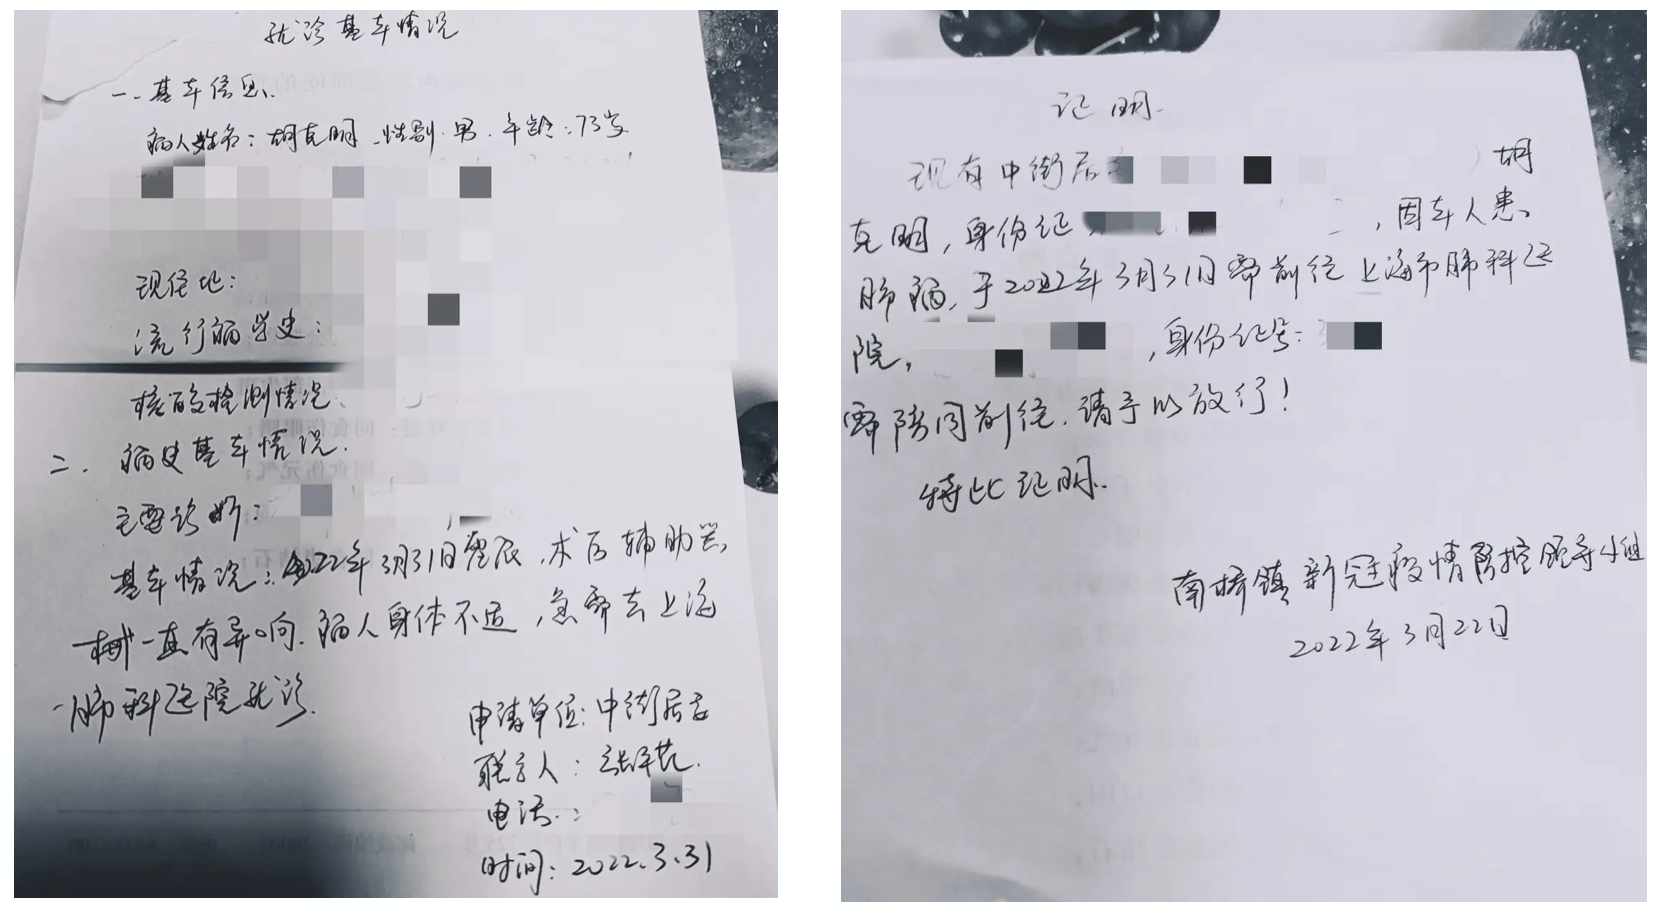 就诊基本情况
一、基本信息
病人姓名：胡克明 性别：男．年龄：73岁
现住地：
流行病学史：
核酸检测情况
二．病史基本情况．
主要诊断：
基本情况：2022年3月31日凌晨，术后辅助器
械一直有异响．病人身体不适，急需去上海
肺科医院就诊．
申请单位：中街居委
联系人：
电话：
时间：2022.3.31
证明．
现有中街居 胡
克明，身份证 ，因本人患
肺病，于2022年3月31日需前往上海市肺科医
院， ，身份证号：
需陪同前往．请予以放行！
特此证明．
南桥镇新冠疫情防控领导小组
2022年3月22日